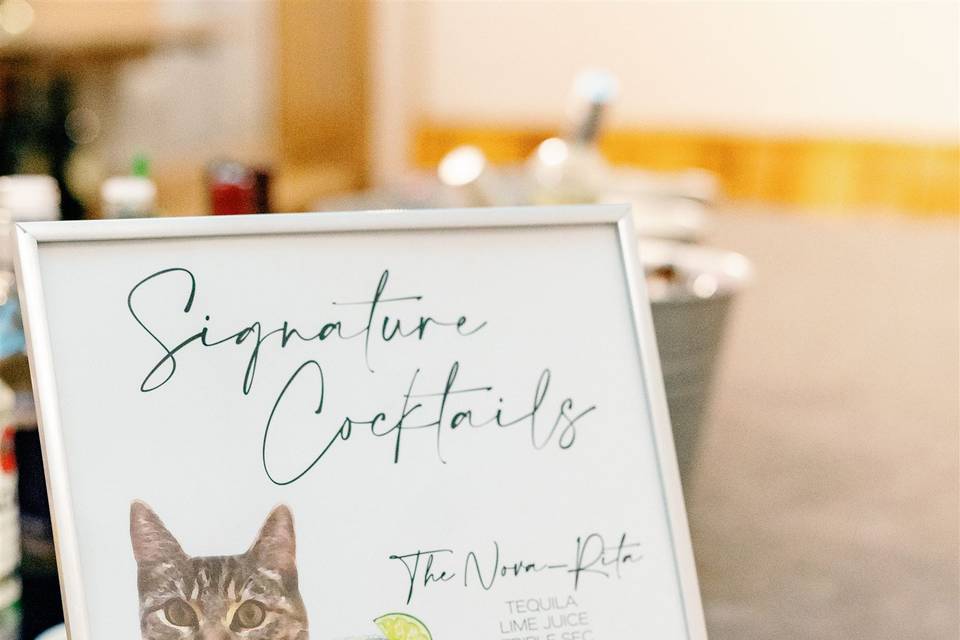 Signature
Cocktails
The Nova-Rita
TEQUILA
LIME JUICE
TRIPLE SEC